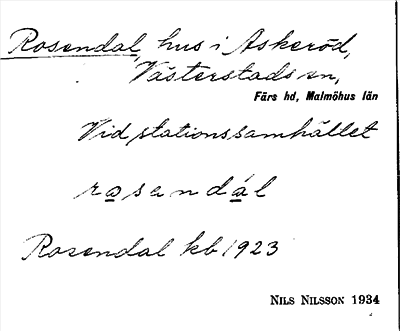 Rosendal, hus i Askeröd,
Västerstads sn,
Färs hd, Malmöhus län
Vid stationssamhället
rasendál
Rosendal kb 1923
NILS NILSSON 1934